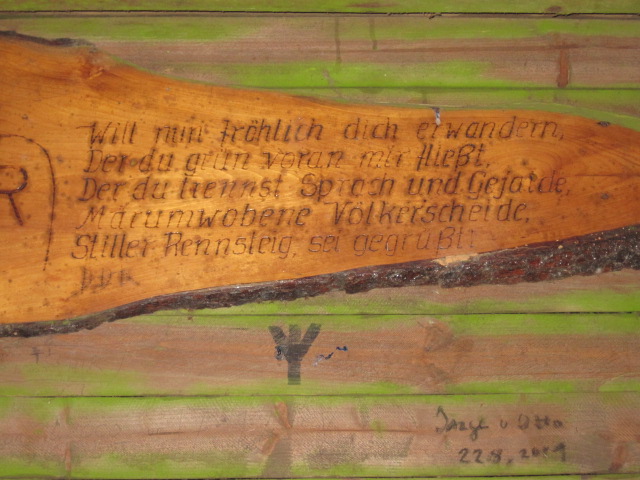 R
Will nun fröhlich dich erwandern,
Der du grün voran mir fließt,
Der du trennst Sprach und Gejaide,
Märumwobene Völkerscheide,
Stiller Rennsteig, sei gegrüßt!
Inge u Otto
22.8.2009